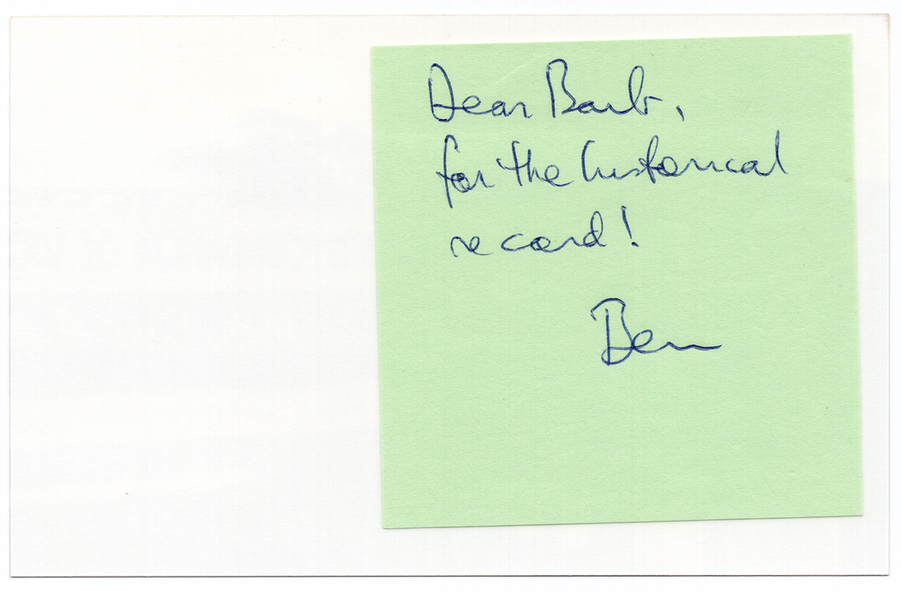 Dear Barb,
for the historical
record!
Ben